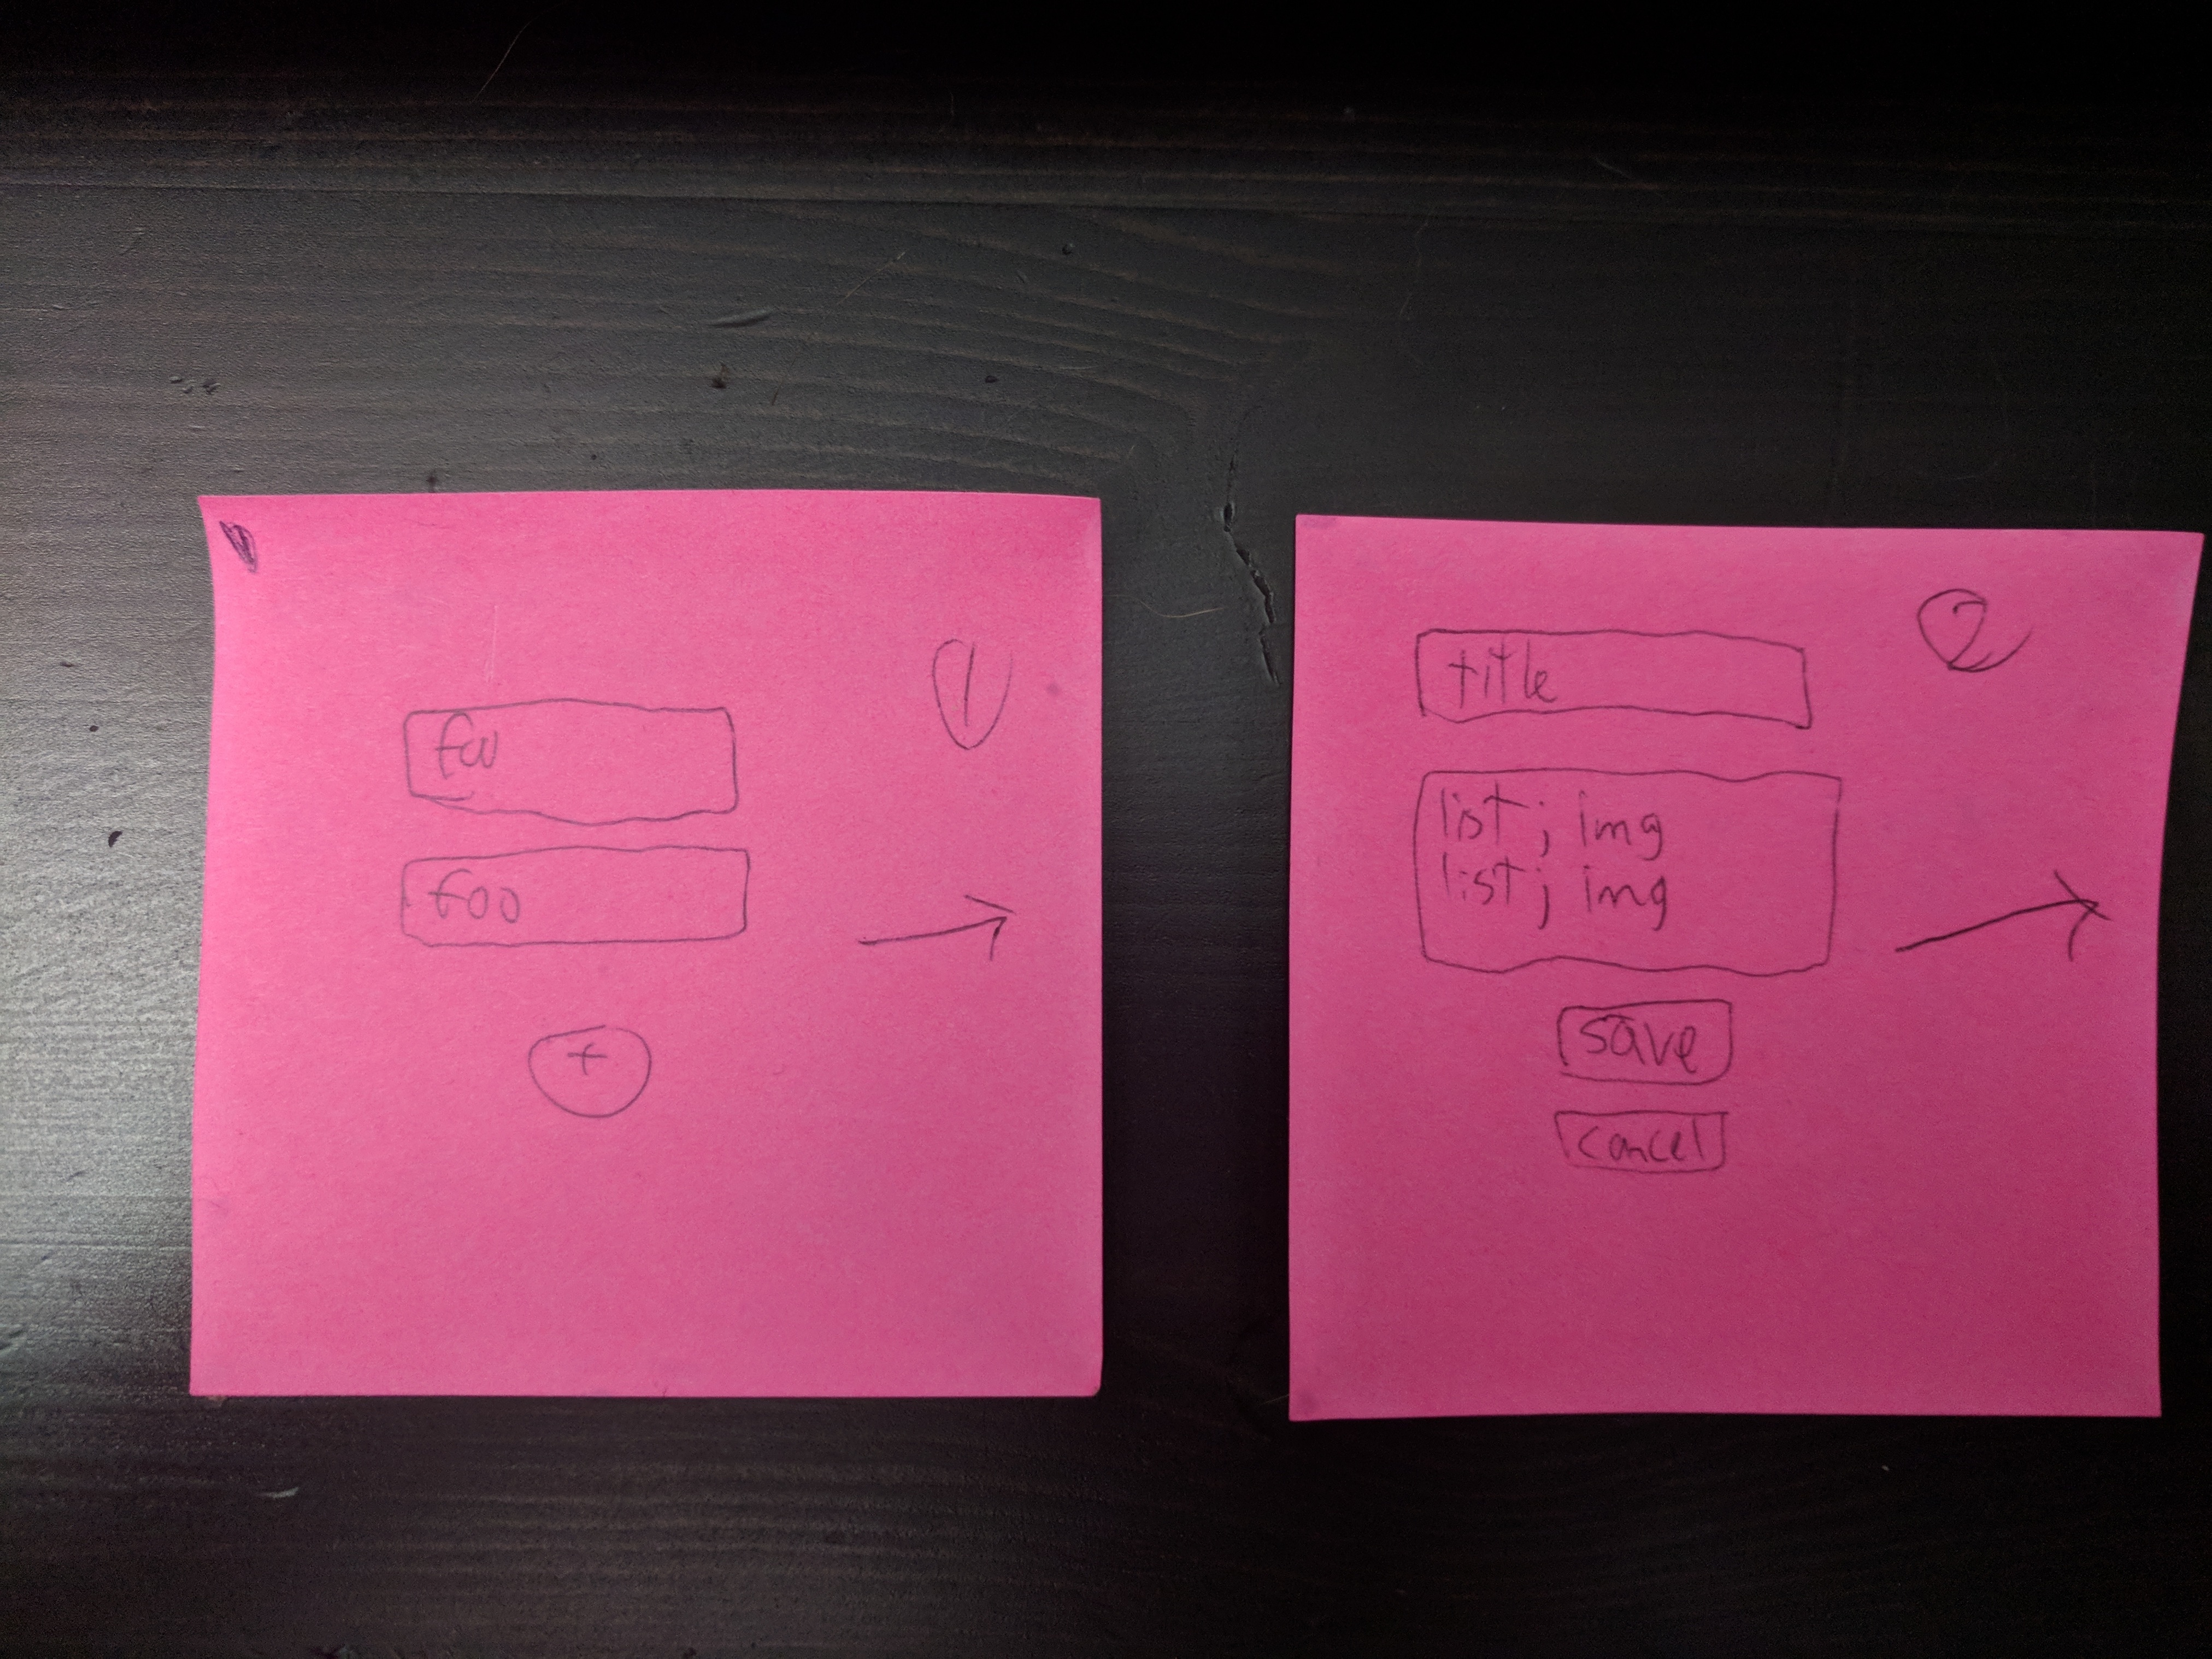 1
foo
foo
+
2
title
list; img
list; img
save
cancel